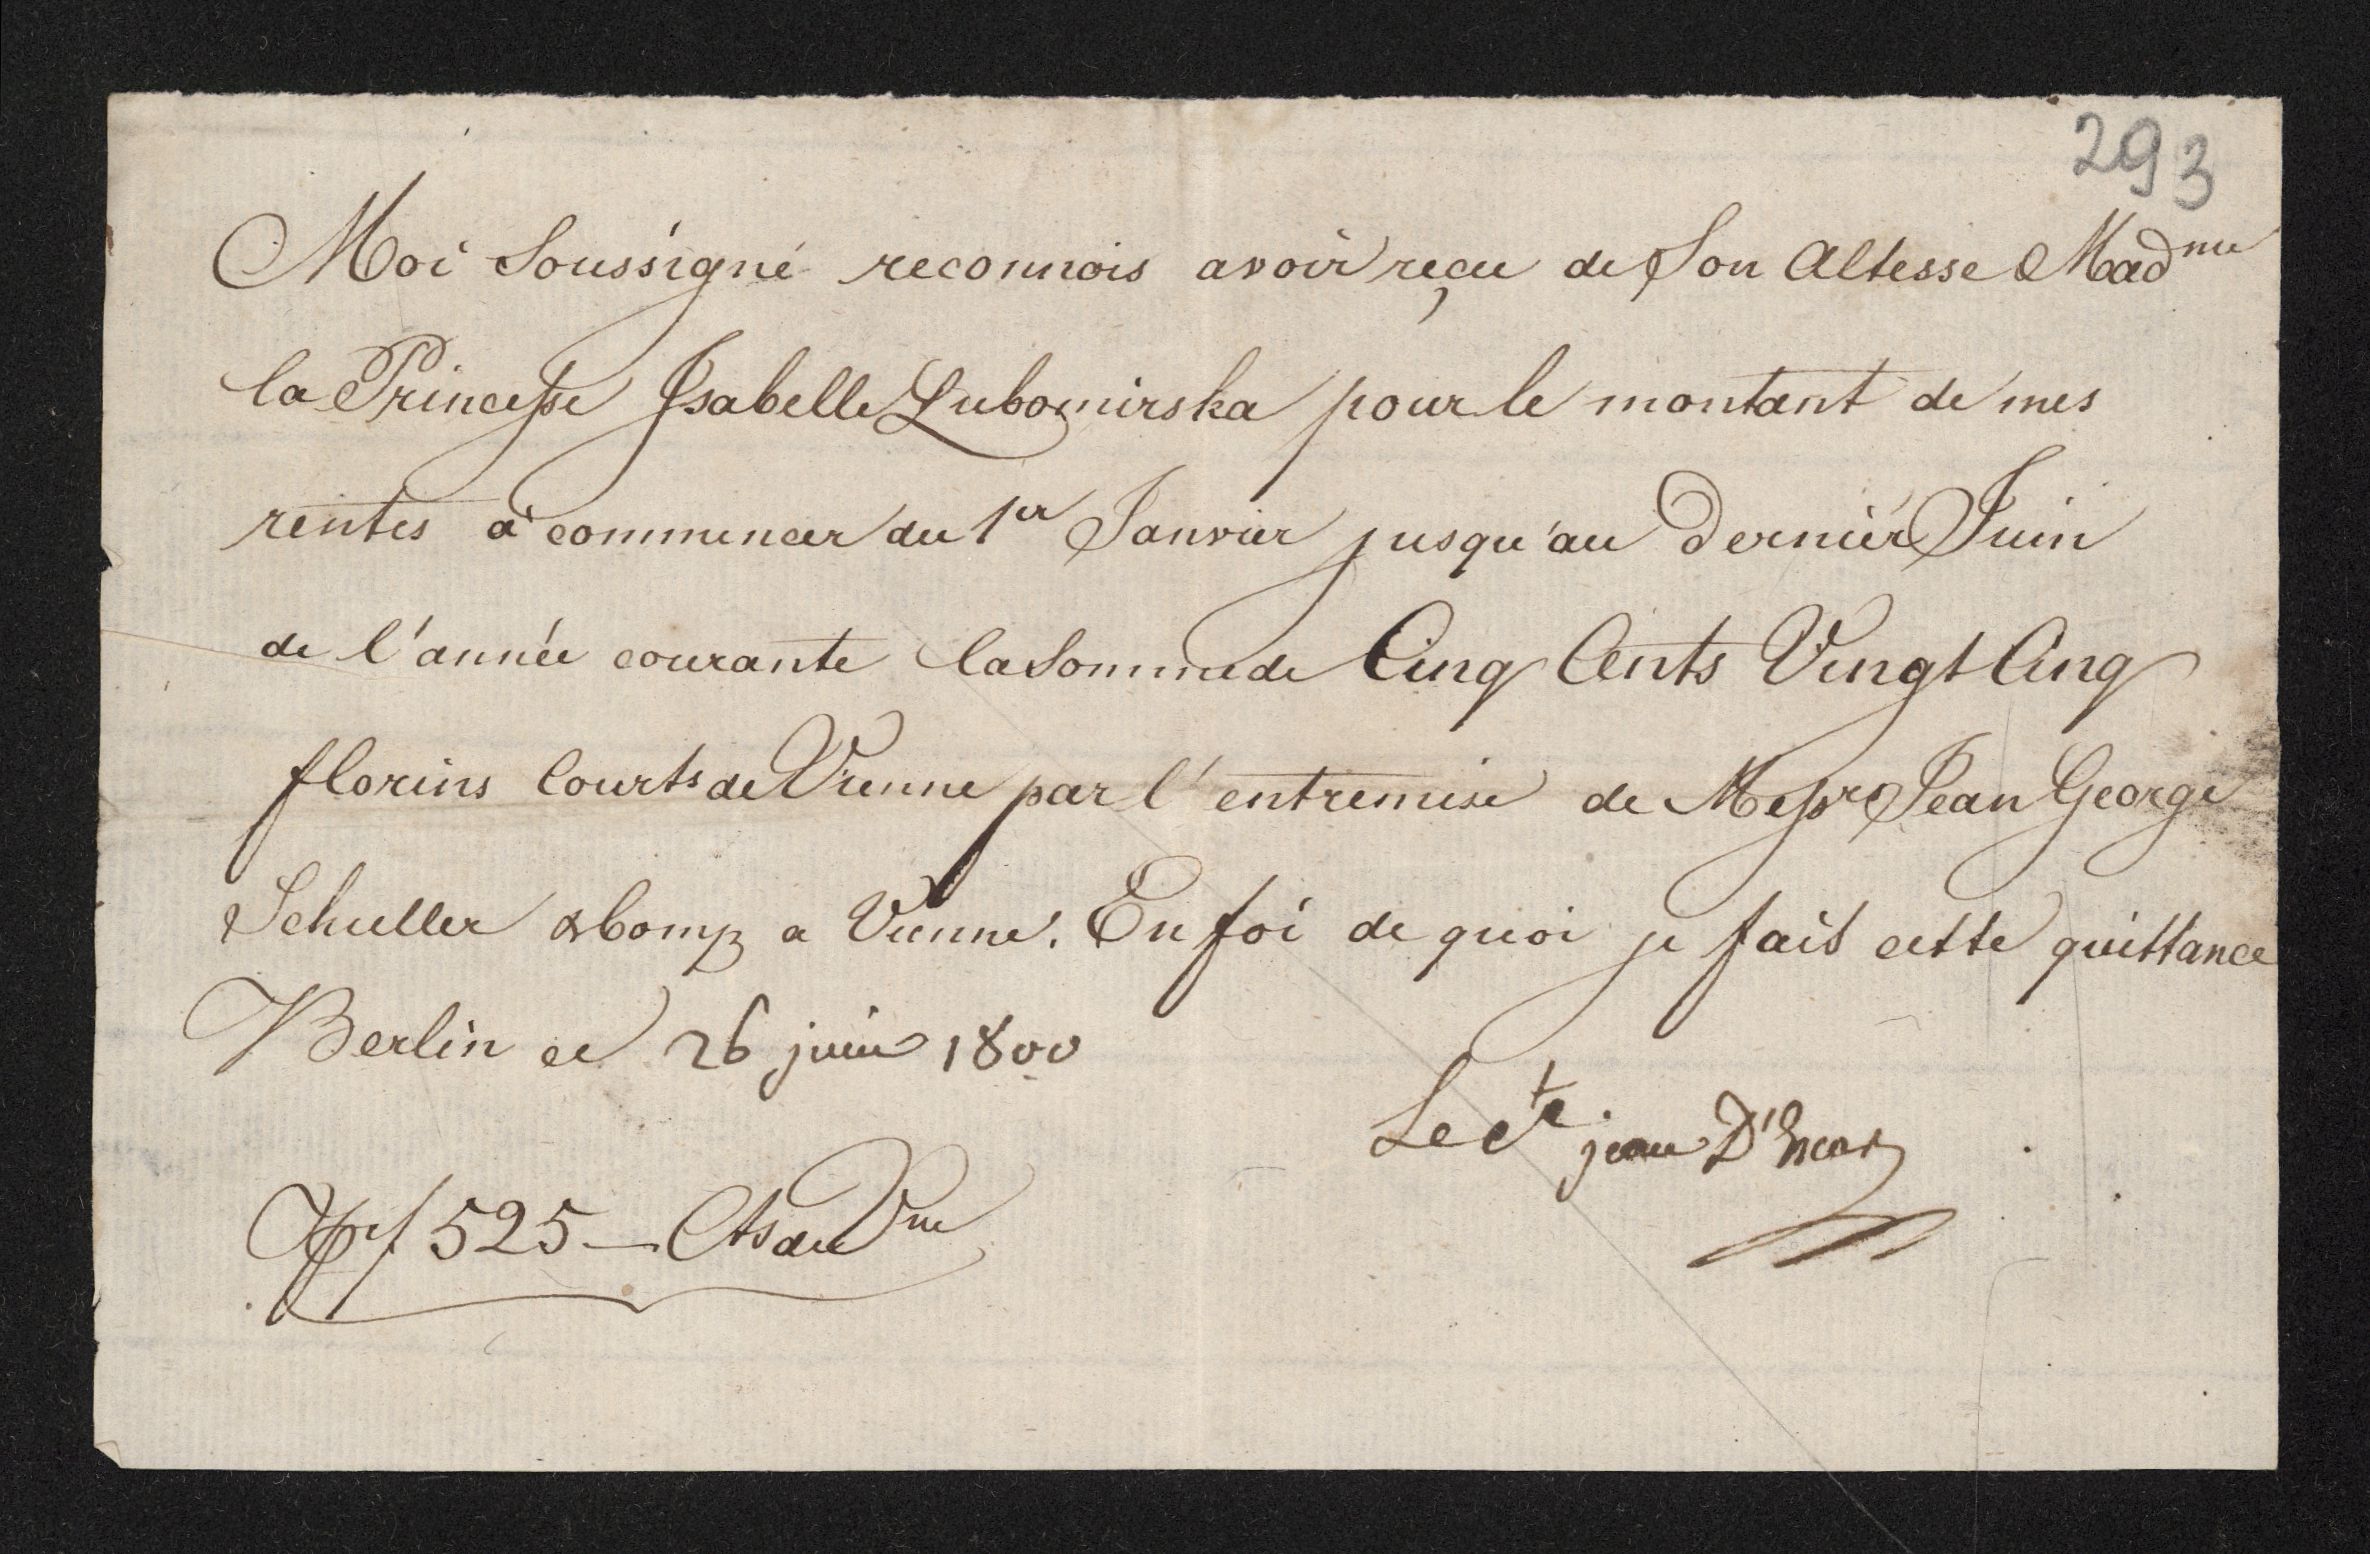 293
Moi Soussigné reconnois avoir reçu de Son Altesse Madme
la Princesse Isabelle Lubomirska pour le montant de mes
rentes à commencer du 1er Janvier jusqu'au Dernier Juin
de l'année courante la Somme de Cinq Cents Vingt Cinq
florins Courts de Vienne par l'entremise de Messrs Jean George
Schuller & Comp a Vienne. En foi de quoi je fais cette quittance
Berlin ce 26 juin 1800
Le cte jean D'
f 525 — Cts de Vne